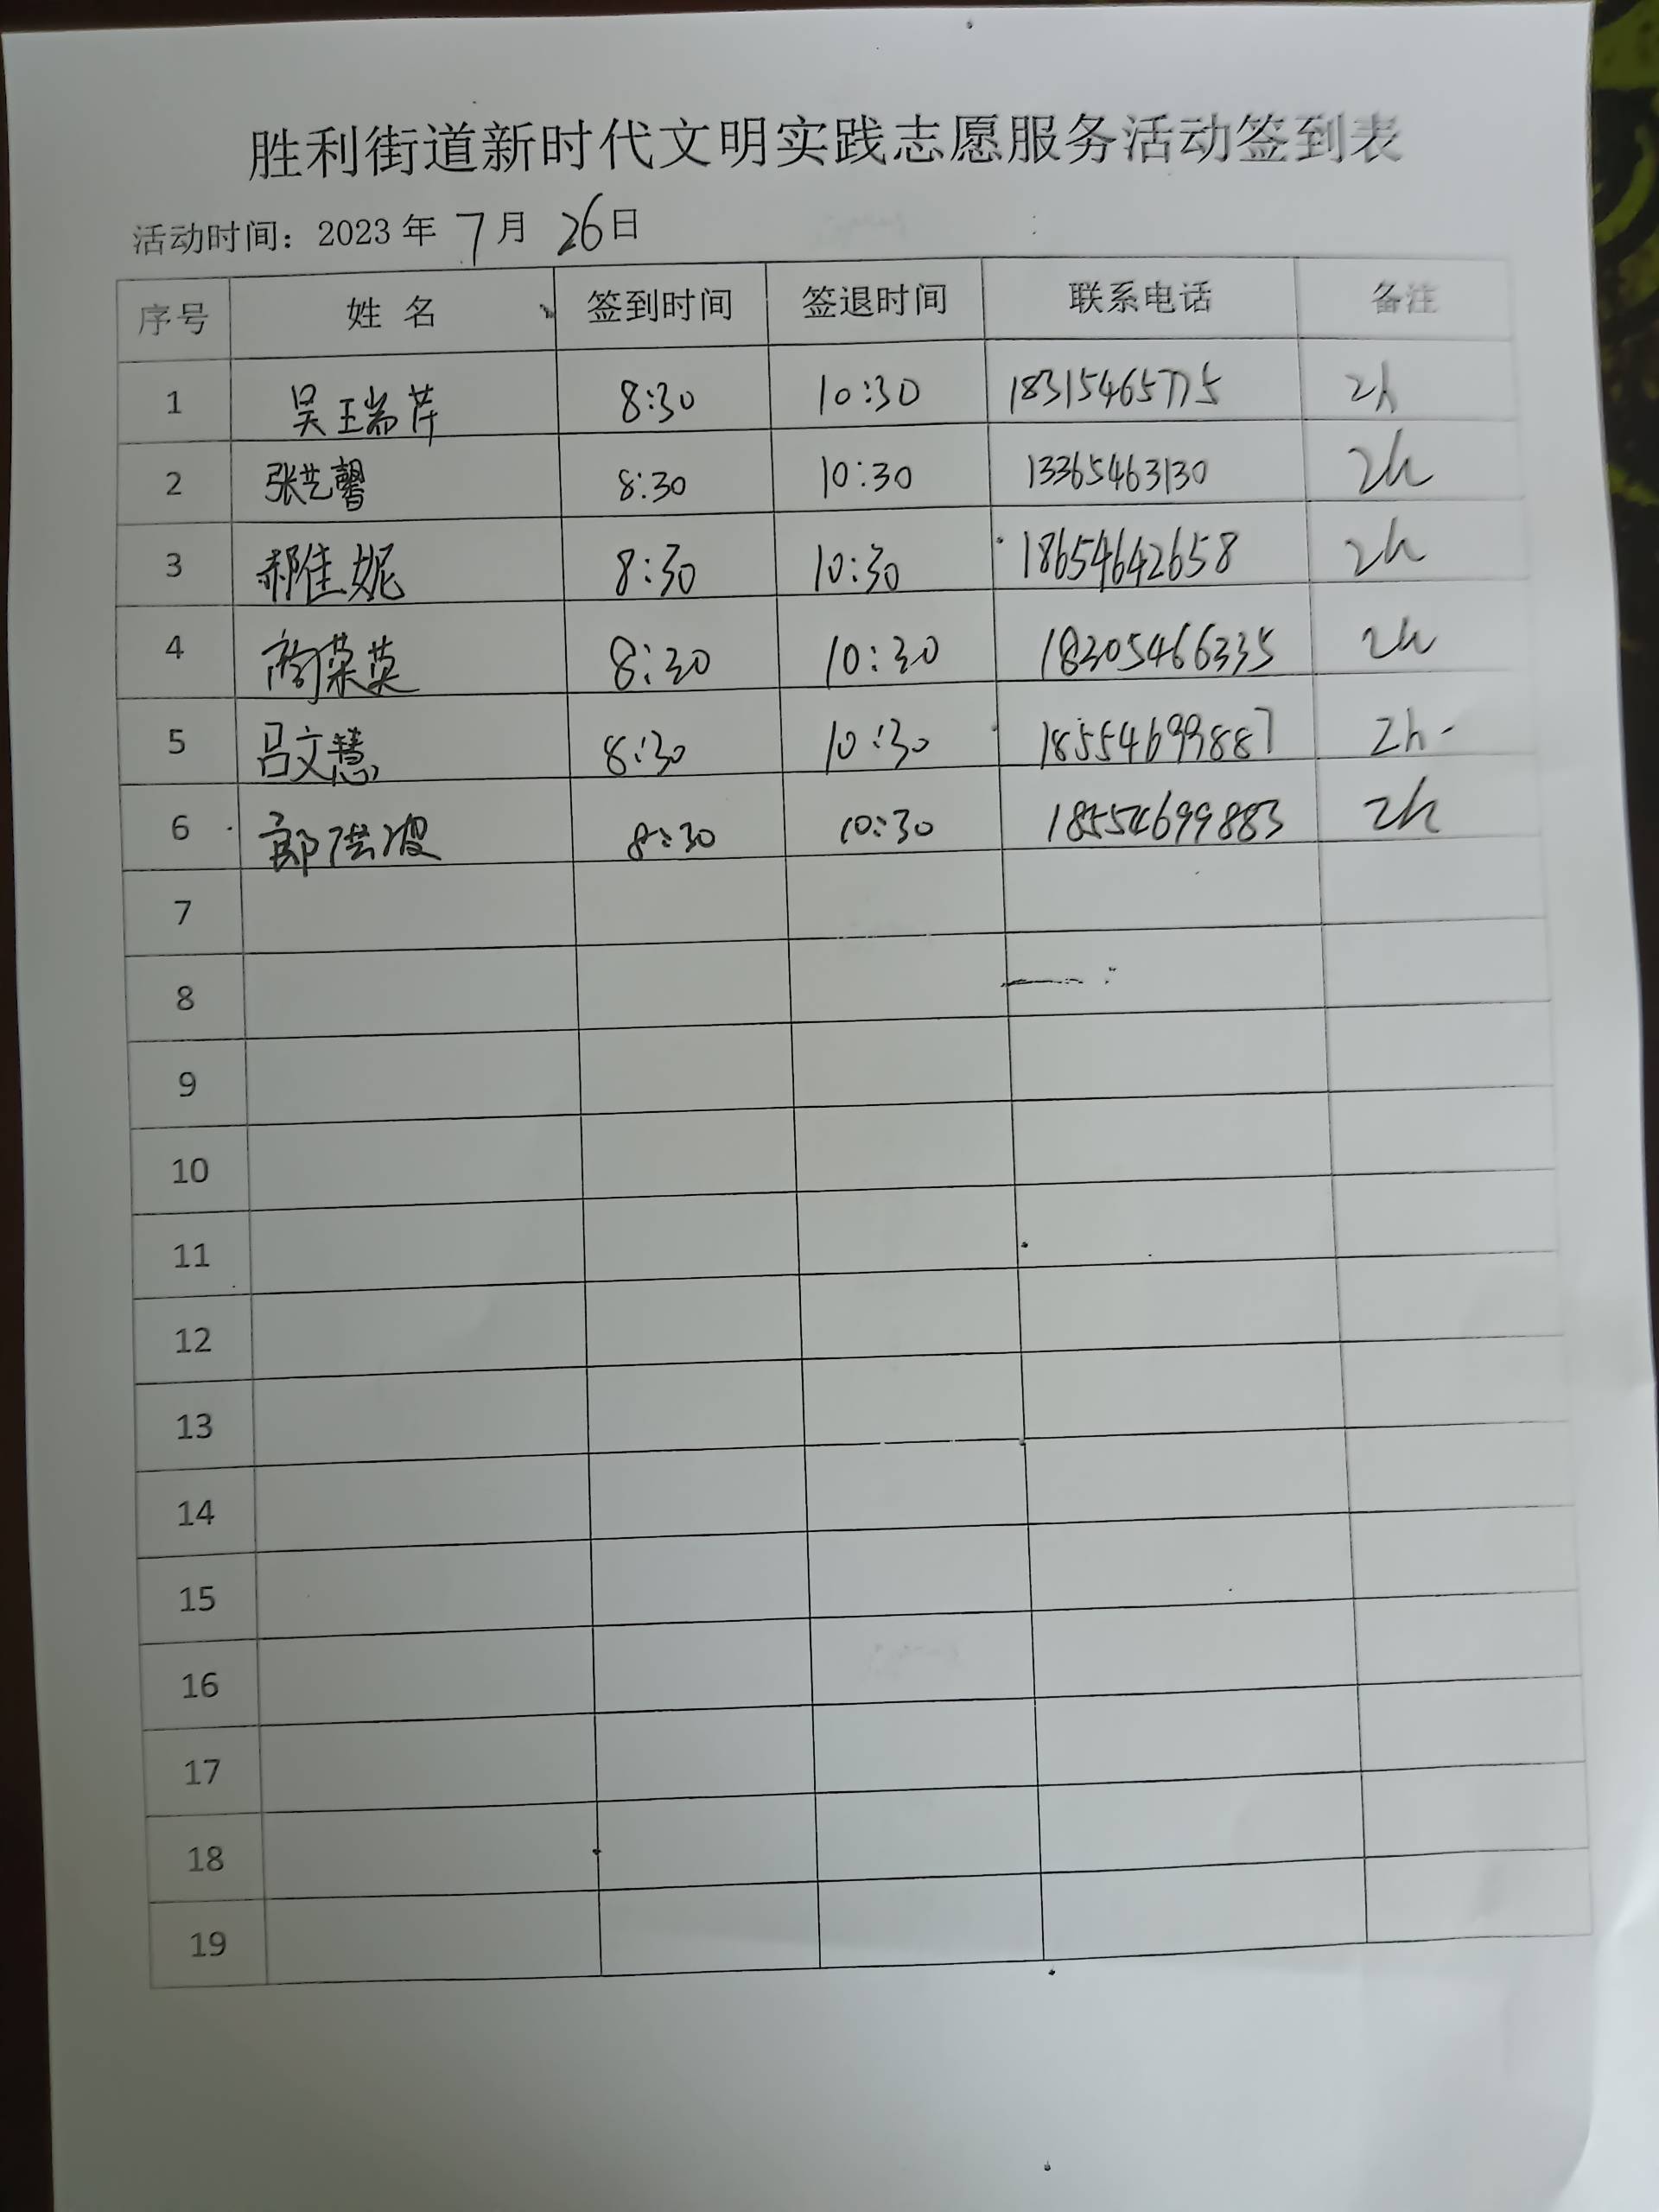 胜利街道新时代文明实践志愿服务活动签到表
活动时间：2023年 7月 26日
序号 姓名 签到时间 签退时间 联系电话 备注
1 吴瑞芹 8:30 10:30 18315465775 2h
2 张艺馨 8:30 10:30 13365463130 2h
3 郝佳妮 8:30 10:30 18654642658 2h
4 荣英 8:30 10:30 18305466335 2h
5 吕文慧 8:30 10:30 18554699887 2h
6 8:30 10:30 18554699883 2h
7
8
9
10
11
12
13
14
15
16
17
18
19